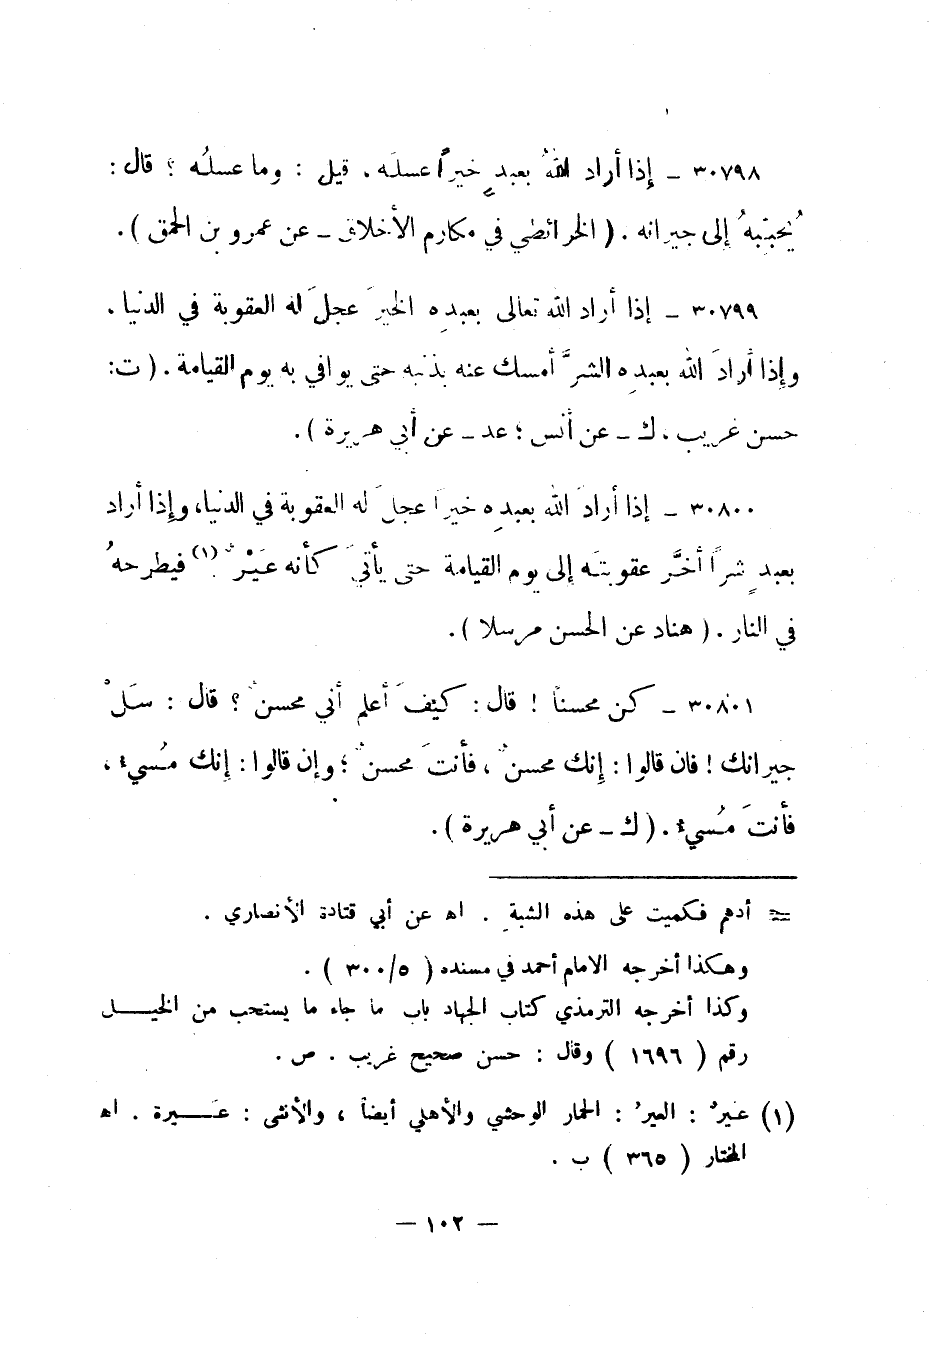 ٣٠٧٩٨ ـ إذا أراد اللهُ بعبدٍ خيراً عسلَه . قيل : وما عسلُه ؟ قال :
يُحبّبهُ إلى جيرانه . ( الخرائطي في مكارم الأخلاق ـ عن عمرو بن الحمق ) .
٣٠٧٩٩ ـ إذا أراد الله تعالى بعبدِه الخيرَ عجلَ له العقوبة في الدنيا .
وإذا أرادَ الله بعبدِه الشرَّ أمسك عنه بذنبِه حتى يوافي به يوم القيامة . ( ت :
حسن غريب . ك ـ عن أنس ؛ عد ـ عن أبي هريرة ) .
٣٠٨٠٠ ـ إذا أرادَ الله بعبدِه خيراً عجلَ له العقوبة في الدنيا ، وإذا أراد
بعبدٍ شراً أخَّر عقوبتَه إلى يوم القيامة حتى يأتيَ كأنه عَيْرٌ (١) فيطرحهُ
في النار . ( هناد عن الحسن مرسلا ) .
٣٠٨٠١ ـ كن محسناً ! قال : كيفَ أعلم أني محسنٌ ؟ قال : سَلْ
جيرانك ! فان قالوا : إنك محسنٌ ، فأنتَ محسنٌ ؛ وإن قالوا : إنك مُسيء ،
فأنتَ مُسيء . ( ك ـ عن أبي هريرة ) .
= أدهم فكميت على هذه الشية . اه عن أبي قتادة الأنصاري .
وهكذا أخرجه الامام أحمد في مسنده ( ٥/٣٠٠ ) .
وكذا أخرجه الترمذي كتاب الجهاد باب ما جاء ما يستحب من الخيــل
رقم ( ١٦٩٦ ) وقال : حسن صحيح غريب . ص .
(١) عيرٌ : العيرُ : الحمار الوحشي والأهلي أيضاً ، والأنثى : عَــيرة . اه
المختار ( ٣٦٥ ) ب .
— ١٠٢ —